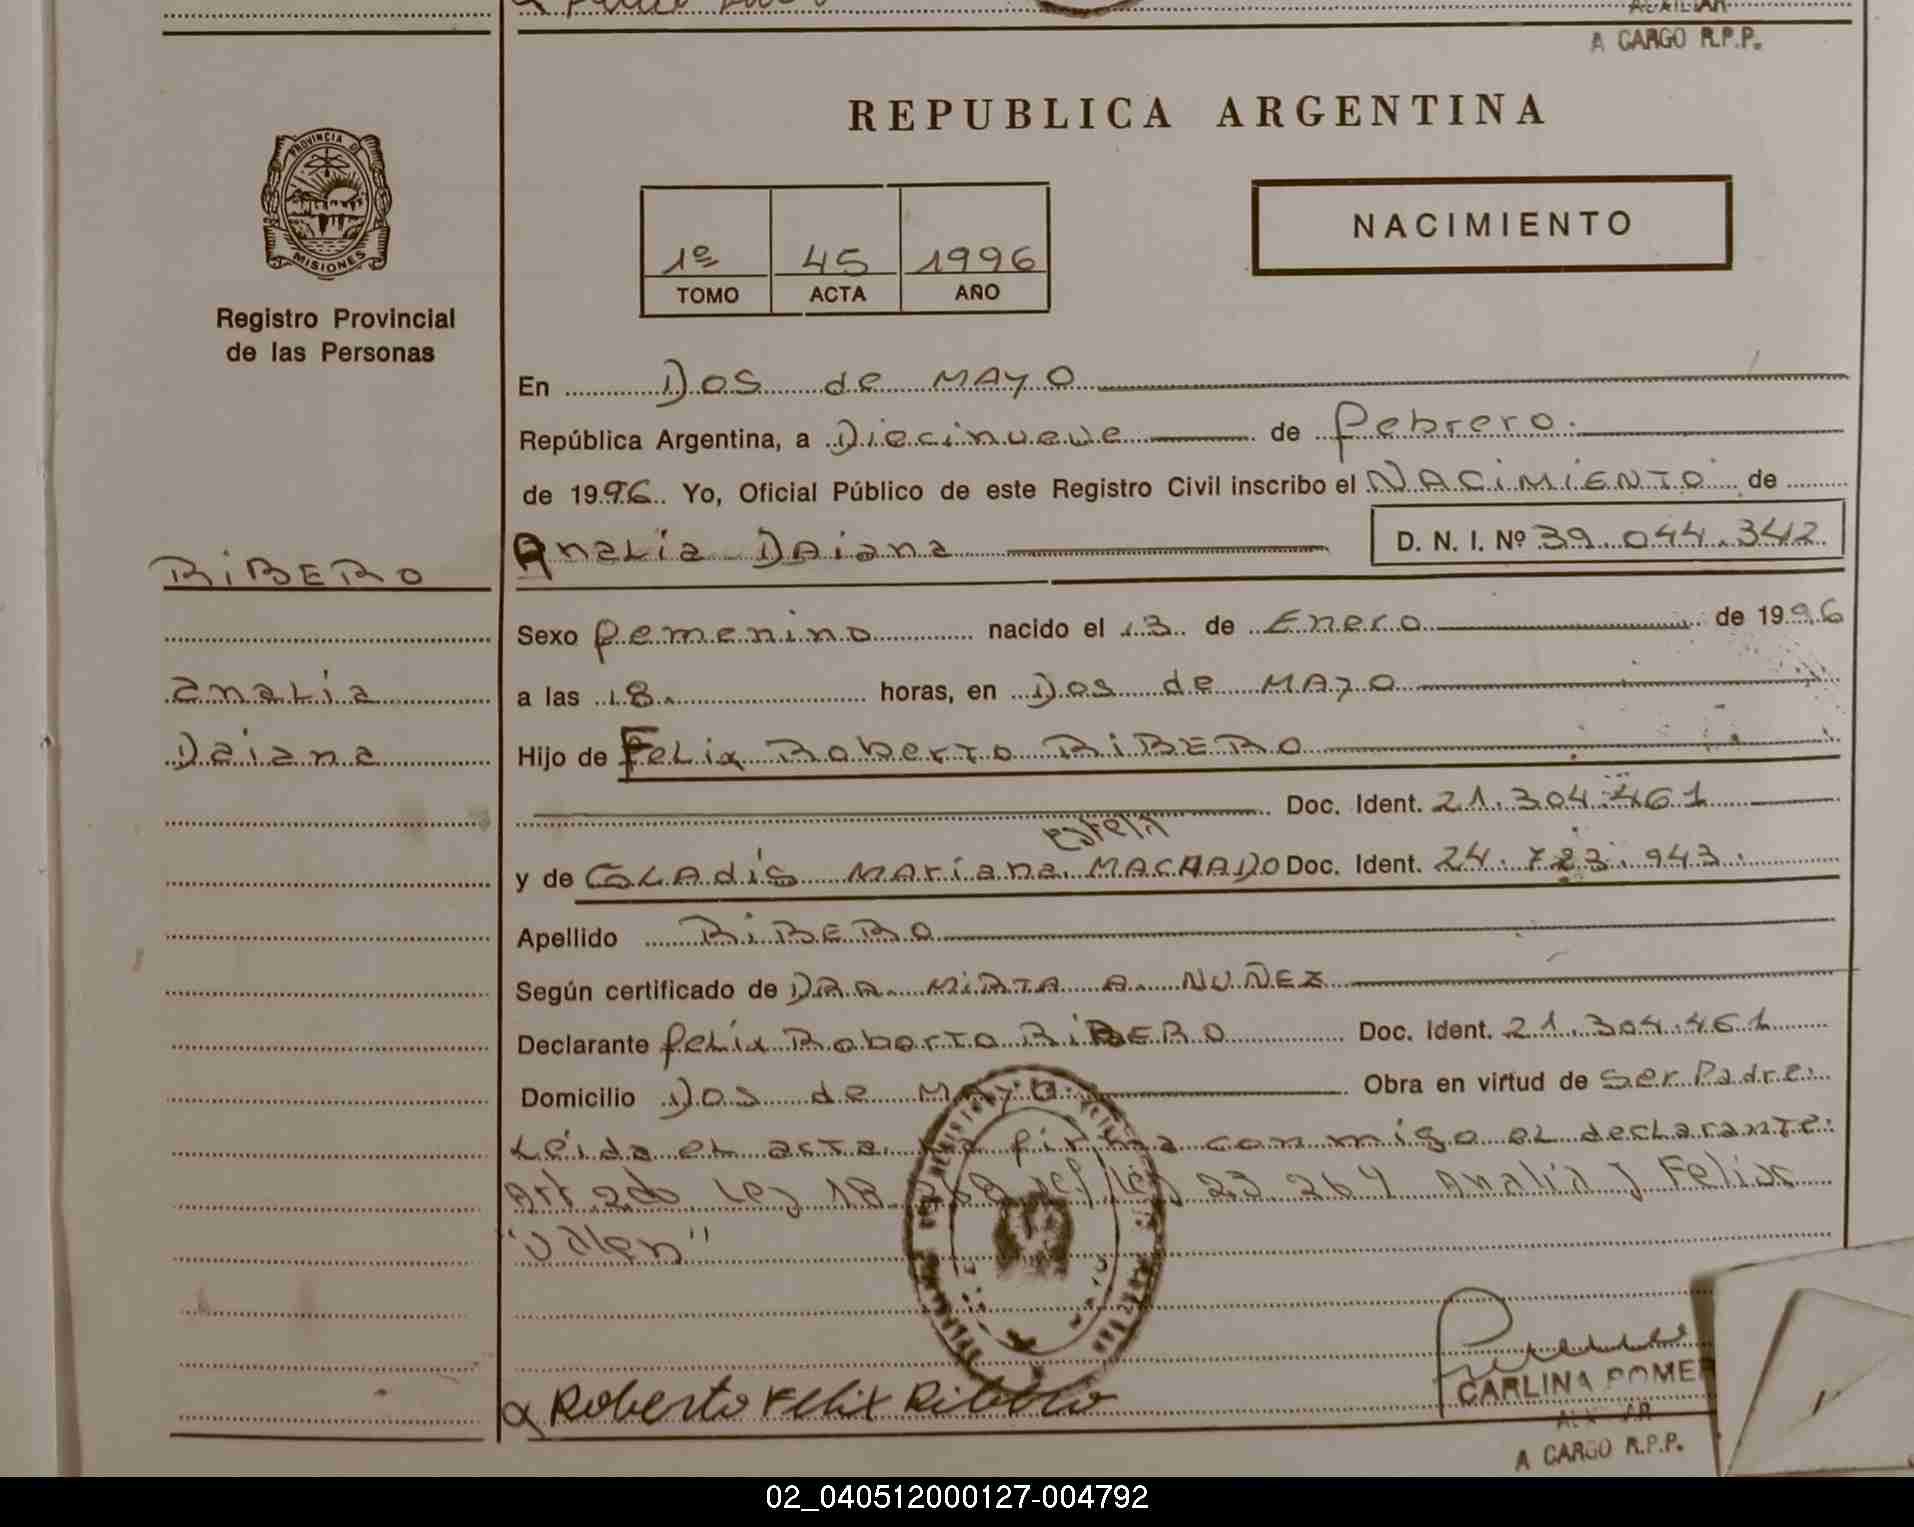 AUXILIAR
A CARGO R.P.P.
REPUBLICA ARGENTINA
PROVINCIA DE
MISIONES
Registro Provincial
de las Personas
NACIMIENTO
1º 45 1996
TOMO ACTA AÑO
En Dos de MAYO
República Argentina, a Diecinueve de febrero.
de 1996. Yo, Oficial Público de este Registro Civil inscribo el NACIMIENTO de
Analia DAiana D. N. I. Nº 39.044.342
RiBERO
Sexo femenino nacido el 13 de Enero de 1996
analia
a las 18. horas, en Dos de MAYO
Daiana
Hijo de Felix Roberto RiBERO
Doc. Ident. 21.304.461
Estela
y de GLAdis Mariana MACHADO Doc. Ident. 24.723.943.
Apellido RiBERO
Según certificado de DRA. MiRTA A. NUÑEZ
Declarante felix Roberto RiBERO Doc. Ident. 21.304.461
Domicilio Dos de MAYO. Obra en virtud de ser Padre.
Leida el acta la firma conmigo el declarante.
Art 2do Ley 18 Ley 23 264 Analia J Felix
"Valen"
Roberto Felix Ribero
CARLINA ROMER
AUXILIAR
A CARGO R.P.P.
02_040512000127-004792